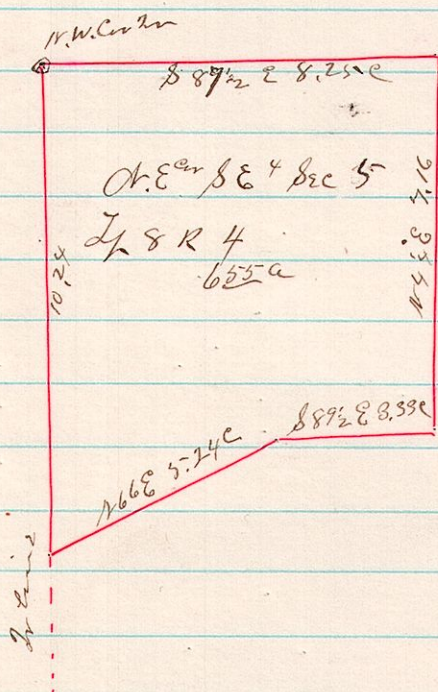 N.W. Cor
S 89½ E 8.25 c
N. E Cor S E 4 Sec 5
Tp 8 R 4
655 a
10.24
S 89½ E 3.33 c
N 66 E 5.24 c